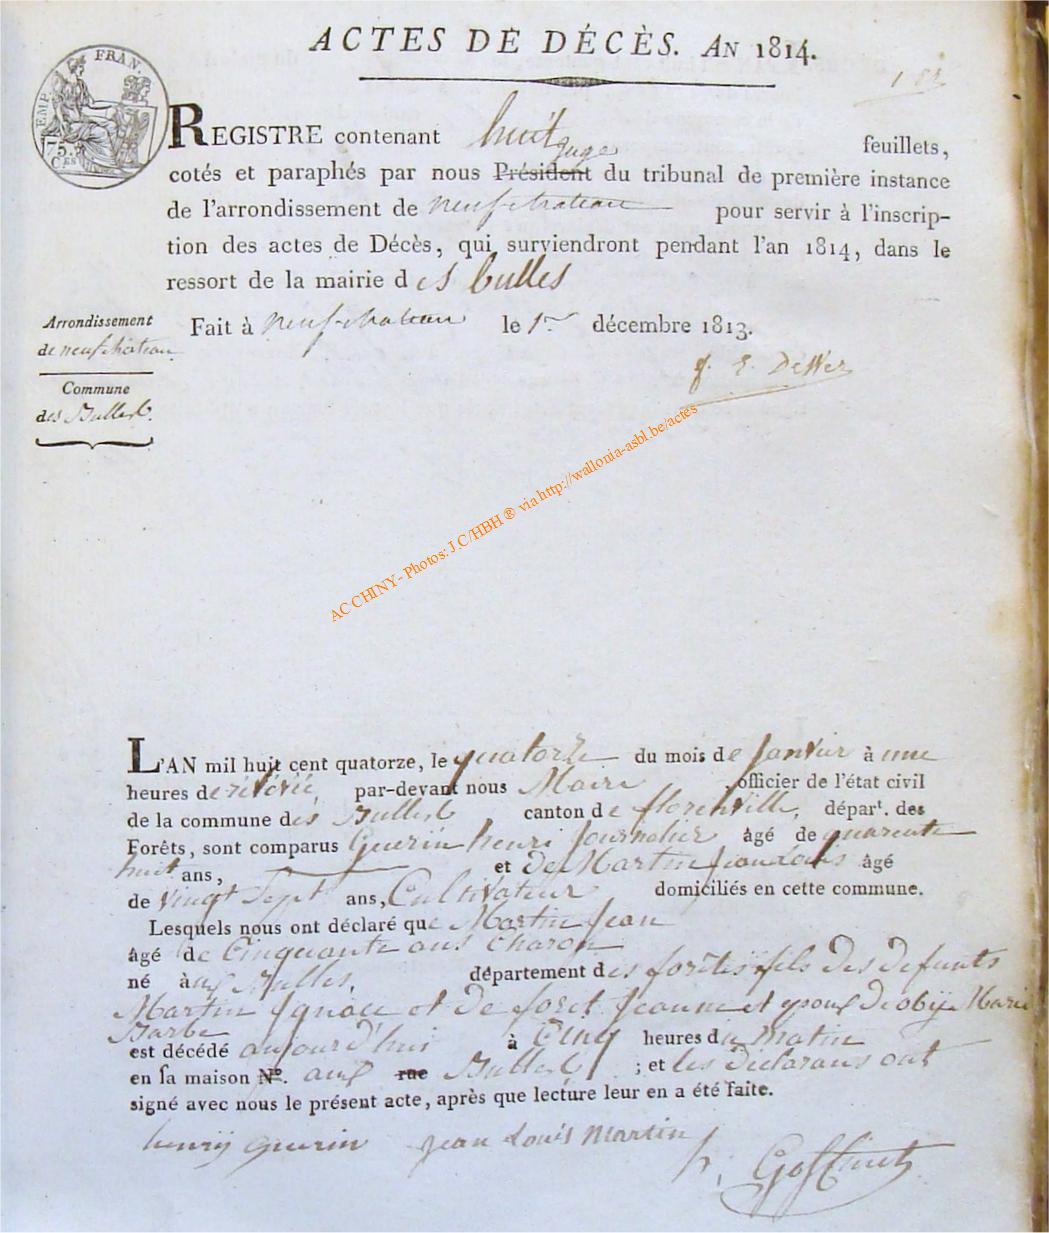 ACTES DE DÉCÈS. AN 1814.
EMP. FRAN.
75.
CES
REGISTRE contenant huit feuillets,
juge
cotés et paraphés par nous Président du tribunal de première instance
de l'arrondissement de neufchateau pour servir à l'inscrip-
tion des actes de Décès, qui surviendront pendant l'an 1814, dans le
ressort de la mairie des bulles
Arrondissement
de neufchâteau
Commune
des Bulles
Fait à neufchateau le 1er décembre 1813.
AC CHINY - Photos: J.C/HBH ® via http://wallonia-asbl.be/actes
L'AN mil huit cent quatorze, le quatorze du mois de janvier à une
heures de relevée par-devant nous Maire officier de l'état civil
de la commune des Bulles canton de florenville, départ. des
Forêts, sont comparus Guerin henri journalier âgé de quarente
huit ans, et de Martin Jean Louis âgé
de vingt sept ans, Cultivateur domiciliés en cette commune.
Lesquels nous ont déclaré que Martin Jean
âgé de Cinquante ans charon
né à aux Bulles, département des forêts fils des defunts
Martin Ignace et de foret Jeanne et epoux de Marie
Barbe
est décédé aujourd'hui à Cinq heures du matin
en sa maison No. aux rue Bulles ; et les déclarans ont
signé avec nous le présent acte, après que lecture leur en a été faite.
henry guerin Jean Louis Martin
h. Goffinet